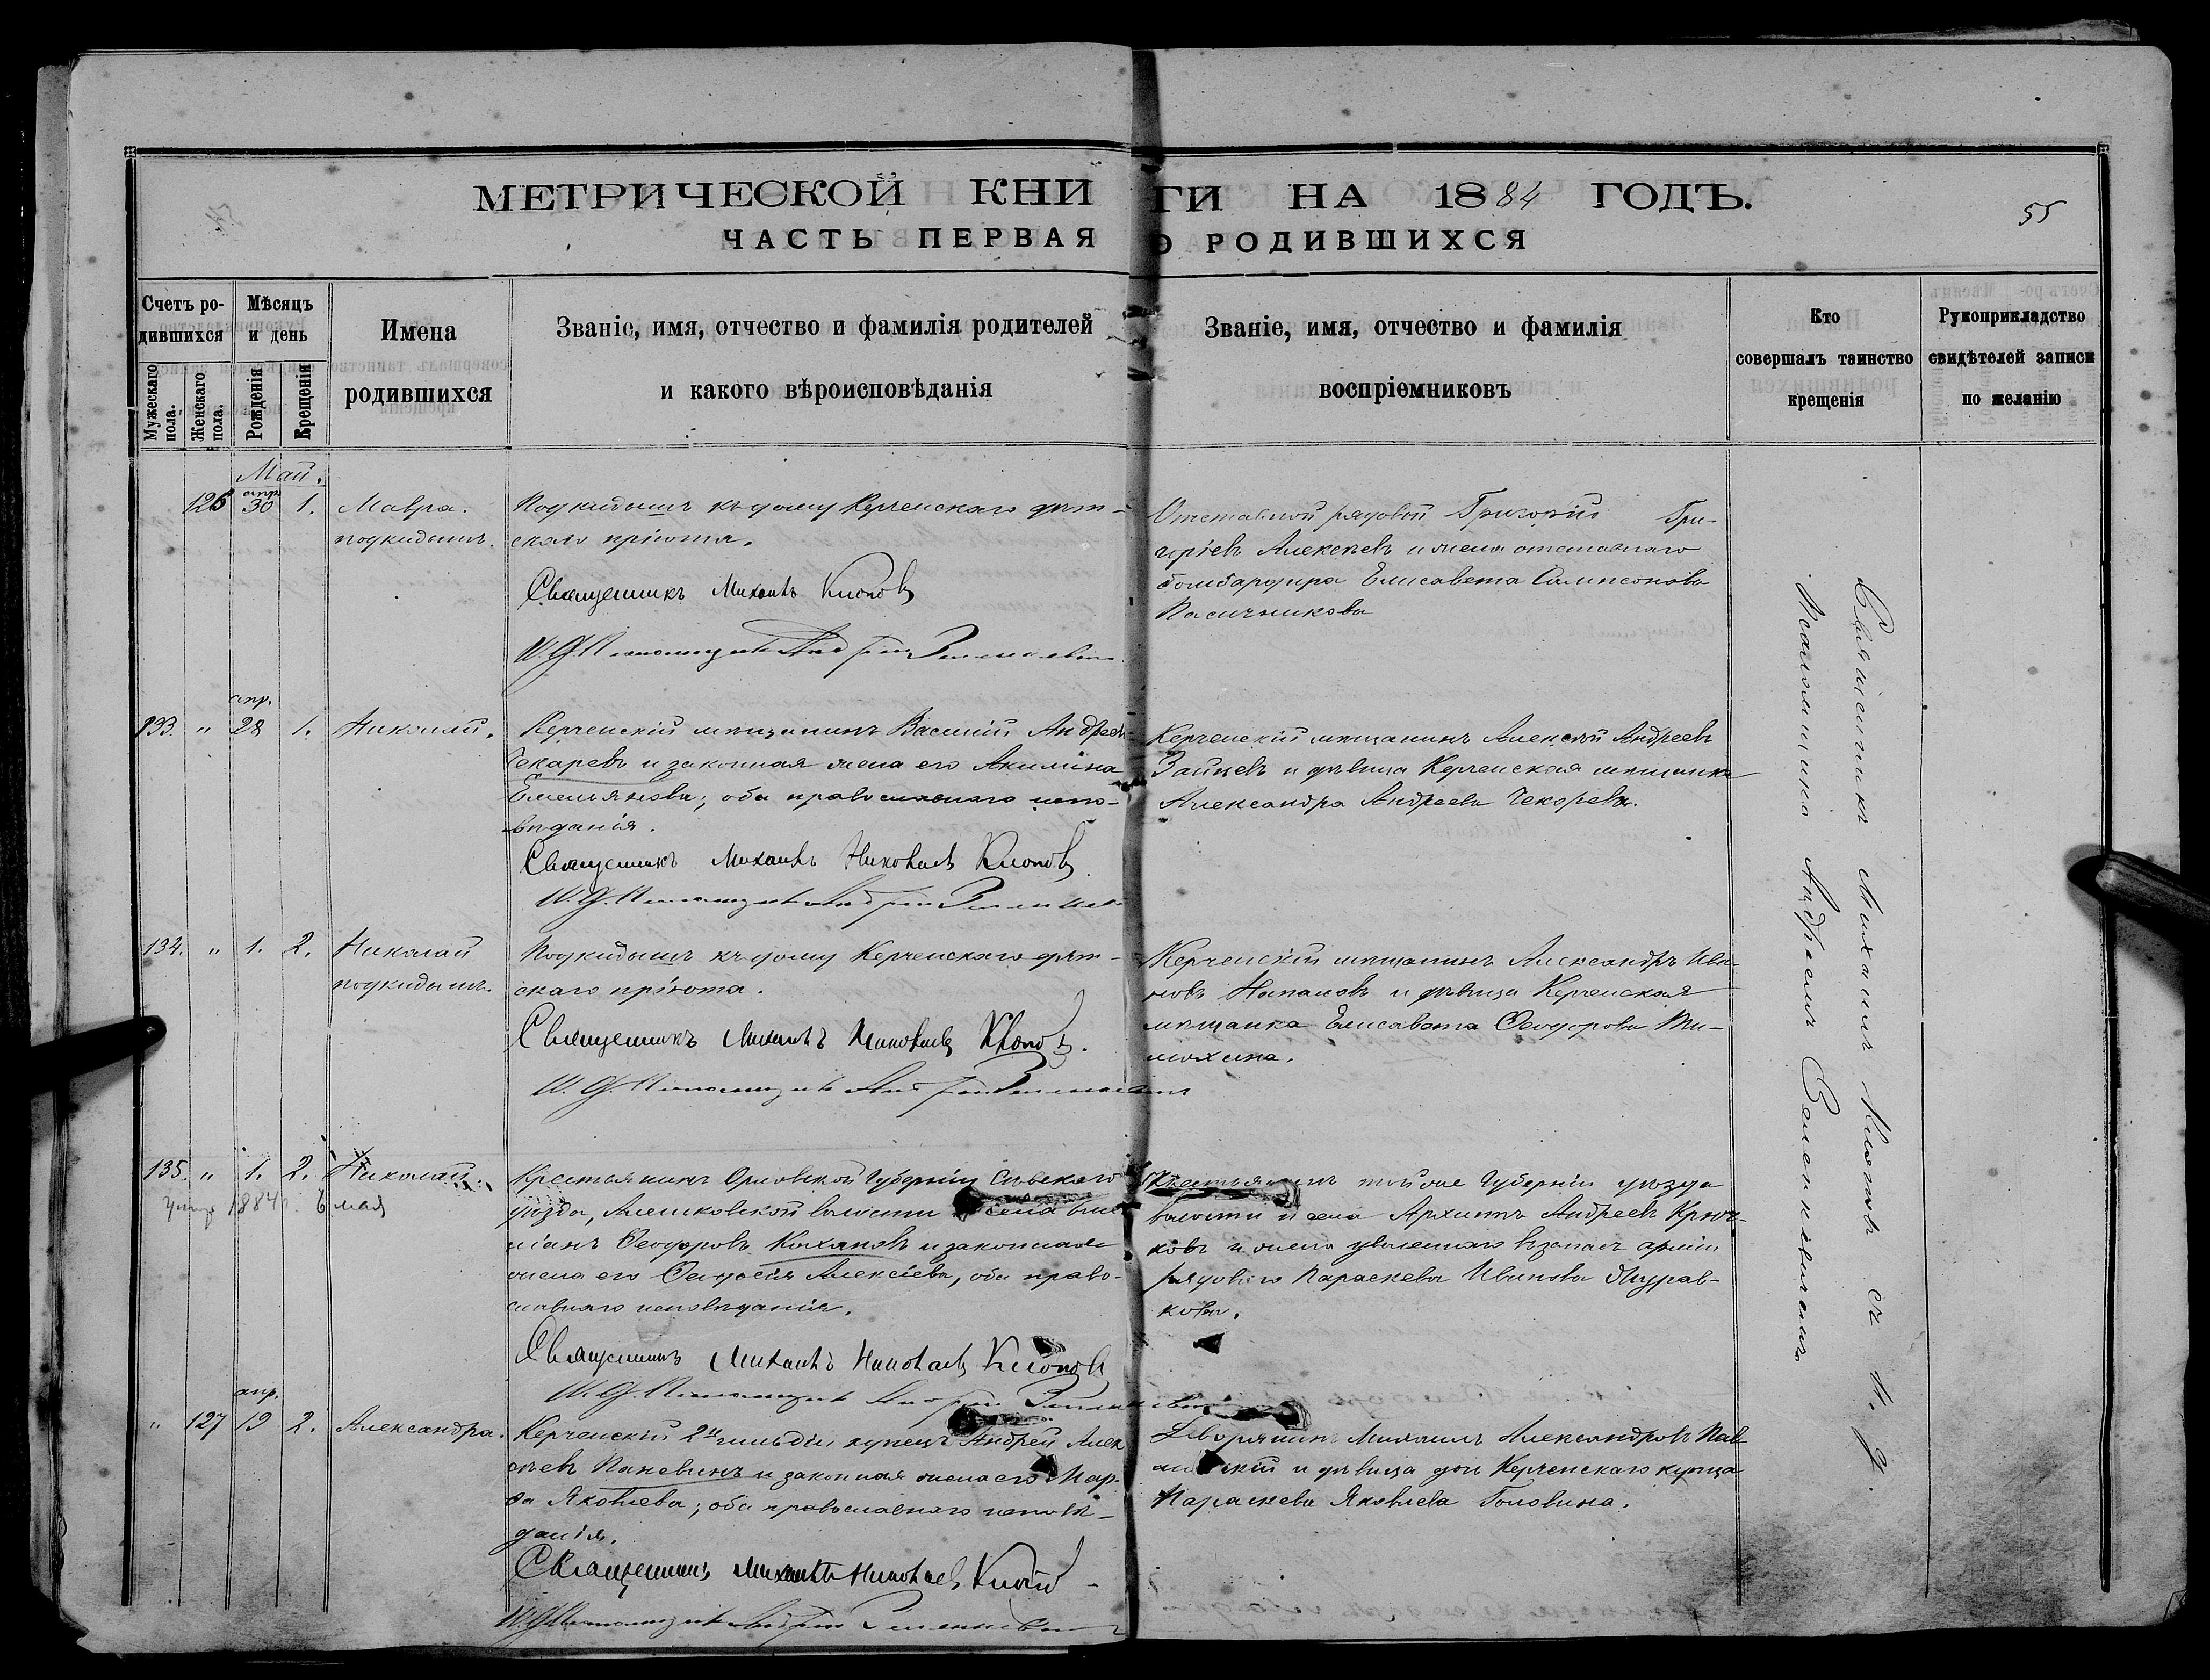 МЕТРИЧЕСКОЙ КНИГИ НА 1884 ГОДЪ.
55
ЧАСТЬ ПЕРВАЯ О РОДИВШИХСЯ
Счетъ ро-
дившихся
Мужескаго пола.
Женскаго пола.
Мѣсяцъ
и день
Рожденія
Крещенія
Имена
родившихся
Званіе, имя, отчество и фамилія родителей
и какого вѣроисповѣданія
Званіе, имя, отчество и фамилія
воспріемниковъ
Кто
совершалъ таинство
крещенія
Рукоприкладство
свидѣтелей записи
по желанію
Май.
126 апр. 30 1. Мавра.
подкидышъ.
Подкидышъ къ дому Керченскаго дѣт-
скаго пріюта.
Священникъ Михаилъ Клоповъ
И. Д. Псаломщика Андрей
Отставной рядовой Григорій Гри-
Алексѣевъ и жена отставнаго
бомбардира Елисавета Сампсонова
Пасичникова
133. " апр. 28 1. Николай.
Керченскій мѣщанинъ Василій Андреевъ
Чекаревъ и законная жена его Акилина
Емельянова; оба православнаго испо-
вѣданія.
Священникъ Михаилъ Николаевъ Клоповъ
И. Д. Псаломщика Андрей
Керченскій мѣщанинъ Алексѣй Андреевъ
Зайцевъ и дѣвица Керченская мѣщанка
Александра Андреева Чекарева.
134. " 1. 2. Николай
подкидышъ.
Подкидышъ къ дому Керченскаго дѣт-
скаго пріюта.
Священникъ Михаилъ Николаевъ Клоповъ.
И. Д. Псаломщика Андрей
Керченскій мѣщанинъ Александръ Ива-
новъ и дѣвица Керченская
мѣщанка Елисавета Ѳеодорова Ти-
мохина.
135. " 1. 2. Николай.
1884 г. 6 мая
Крестьянинъ Орловской Губерніи Сѣвскаго
уѣзда, Алешковской волости села
Ѳеодоровъ Кохановъ и законная
жена его Ѳеодосія Алексіева, оба право-
славнаго исповѣданія.
Священникъ Михаилъ Николаевъ Клоповъ
И. Д. Псаломщика Андрей
Крестьянинъ той же Губерніи уѣзда
волости и села Архипъ Андреевъ Крюч-
ковъ и жена уволеннаго въ запасъ арміи
рядоваго Параскева Иванова Журав-
кова.
" 127 апр. 19 2. Александра.
Керченскій 2й гильдіи купецъ Андрей Алек-
сѣевъ Паневинъ и законная жена его Мар-
ѳа Яковлева; оба православнаго исповѣ-
данія.
Священникъ Михаилъ Николаевъ Клоповъ
И. Д. Псаломщика Андрей
Дворянинъ Михаилъ Александровъ
и дѣвица дочь Керченскаго купца
Параскева Яковлева Головина.
Священникъ Михаилъ Клоповъ съ И. Д.
Псаломщика Андреемъ Селенкевичемъ